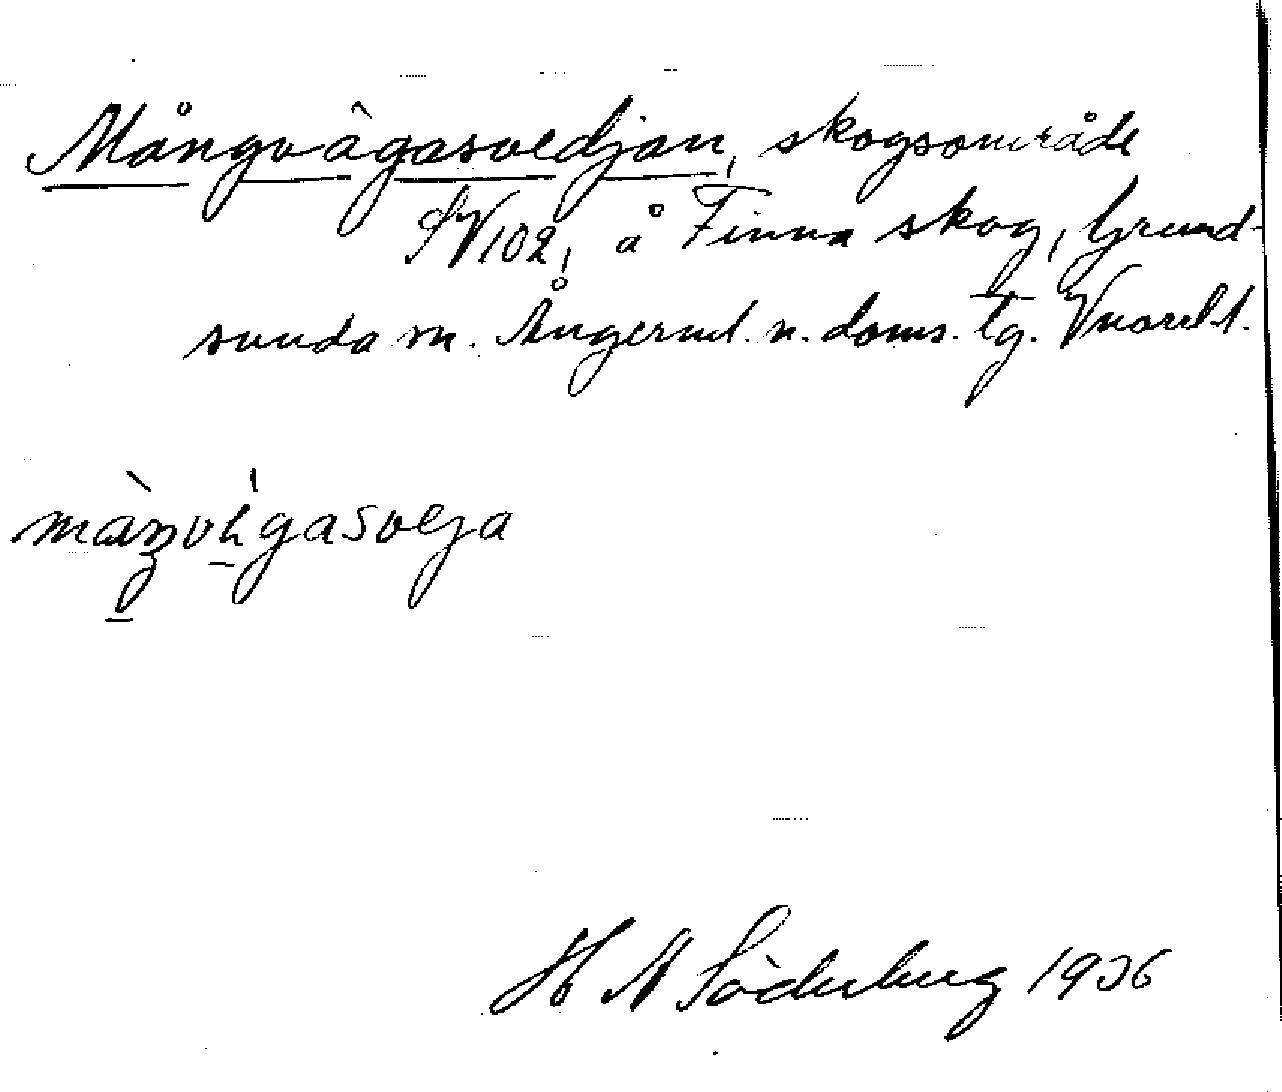 Mångvâgasvedjan, skogsområde
SV102, å Finna skog, Grund-
sunda sn. Ångerml. n. doms. tg. Vnorrl. l.
H N Söderberg 1936